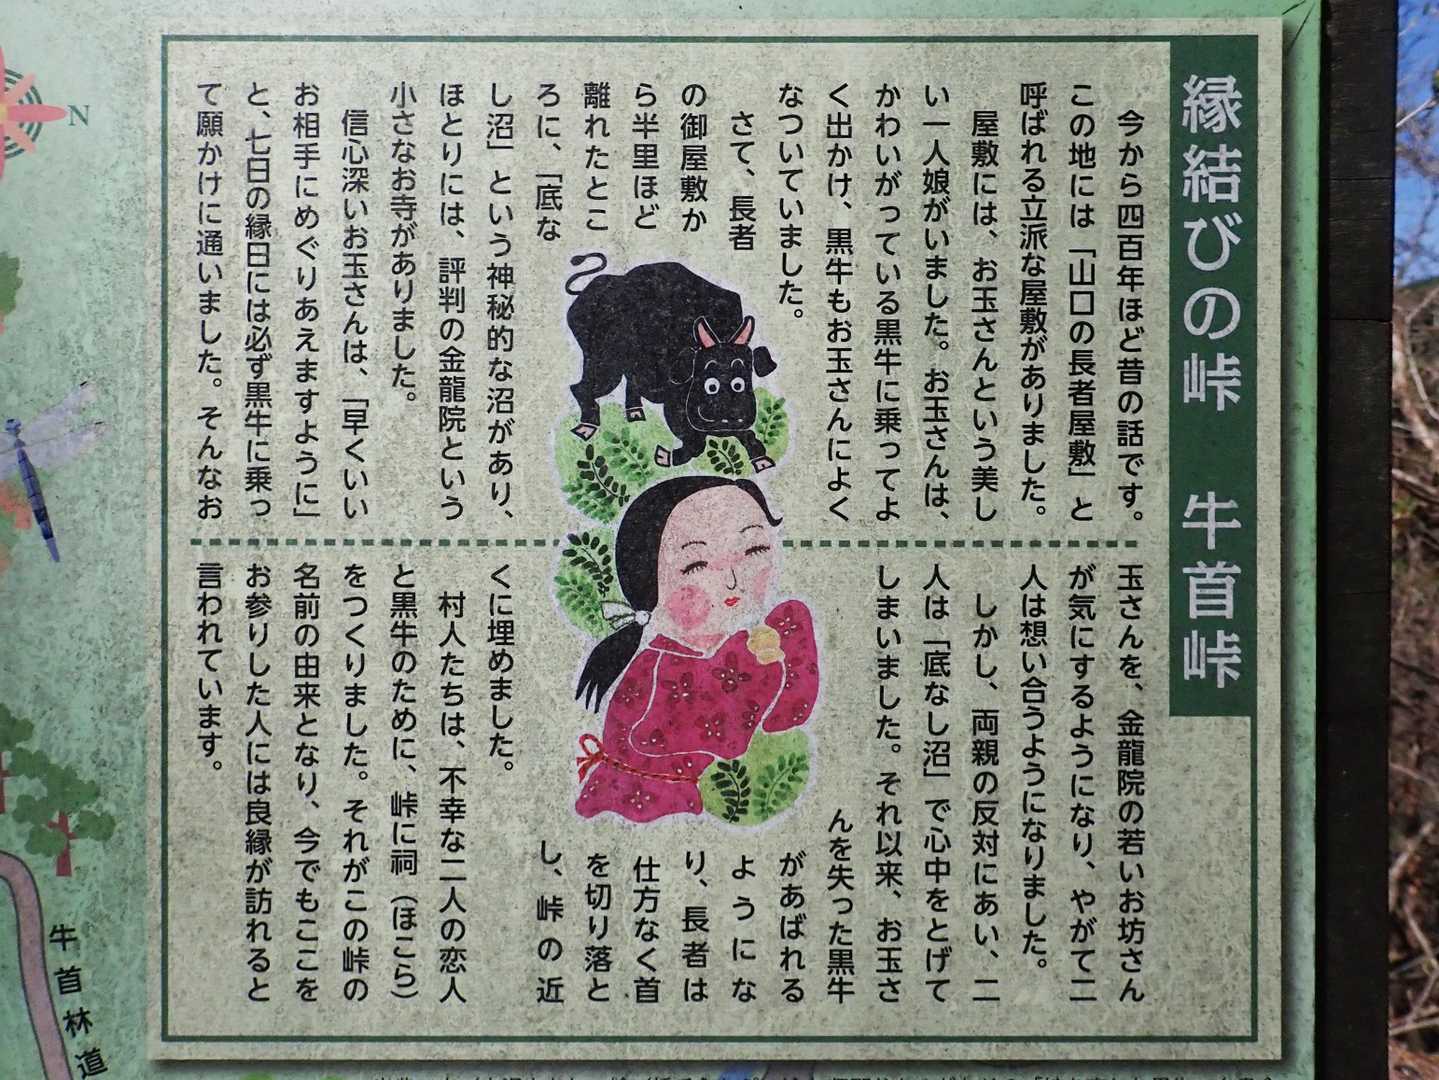 縁結びの峠　牛首峠
今から四百年ほど昔の話です。
この地には「山口の長者屋敷」と
呼ばれる立派な屋敷がありました。
屋敷には、お玉さんという美し
い一人娘がいました。お玉さんは、
かわいがっている黒牛に乗ってよ
く出かけ、黒牛もお玉さんによく
なついていました。
さて、長者
の御屋敷か
ら半里ほど
離れたとこ
ろに、「底な
し沼」という神秘的な沼があり、
ほとりには、評判の金龍院という
小さなお寺がありました。
信心深いお玉さんは、「早くいい
お相手にめぐりあえますように」
と、七日の縁日には必ず黒牛に乗っ
て願かけに通いました。そんなお
玉さんを、金龍院の若いお坊さん
が気にするようになり、やがて二
人は想い合うようになりました。
しかし、両親の反対にあい、二
人は「底なし沼」で心中をとげて
しまいました。それ以来、お玉さ
んを失った黒牛
があばれる
ようにな
り、長者は
仕方なく首
を切り落と
し、峠の近
くに埋めました。
村人たちは、不幸な二人の恋人
と黒牛のために、峠に祠（ほこら）
をつくりました。それがこの峠の
名前の由来となり、今でもここを
お参りした人には良縁が訪れると
言われています。
N
牛首林道